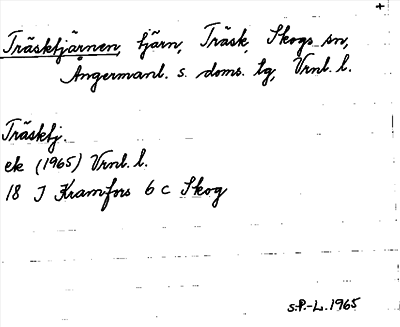 +
Träsktjärnen, tjärn, Träsk, Skogs sn,
Ångermanl. s. doms. tg, Vrnl. l.
Träsktj.
ek (1965) Vrnl. l.
18 J Kramfors 6 c Skog
S.P.-L. 1965